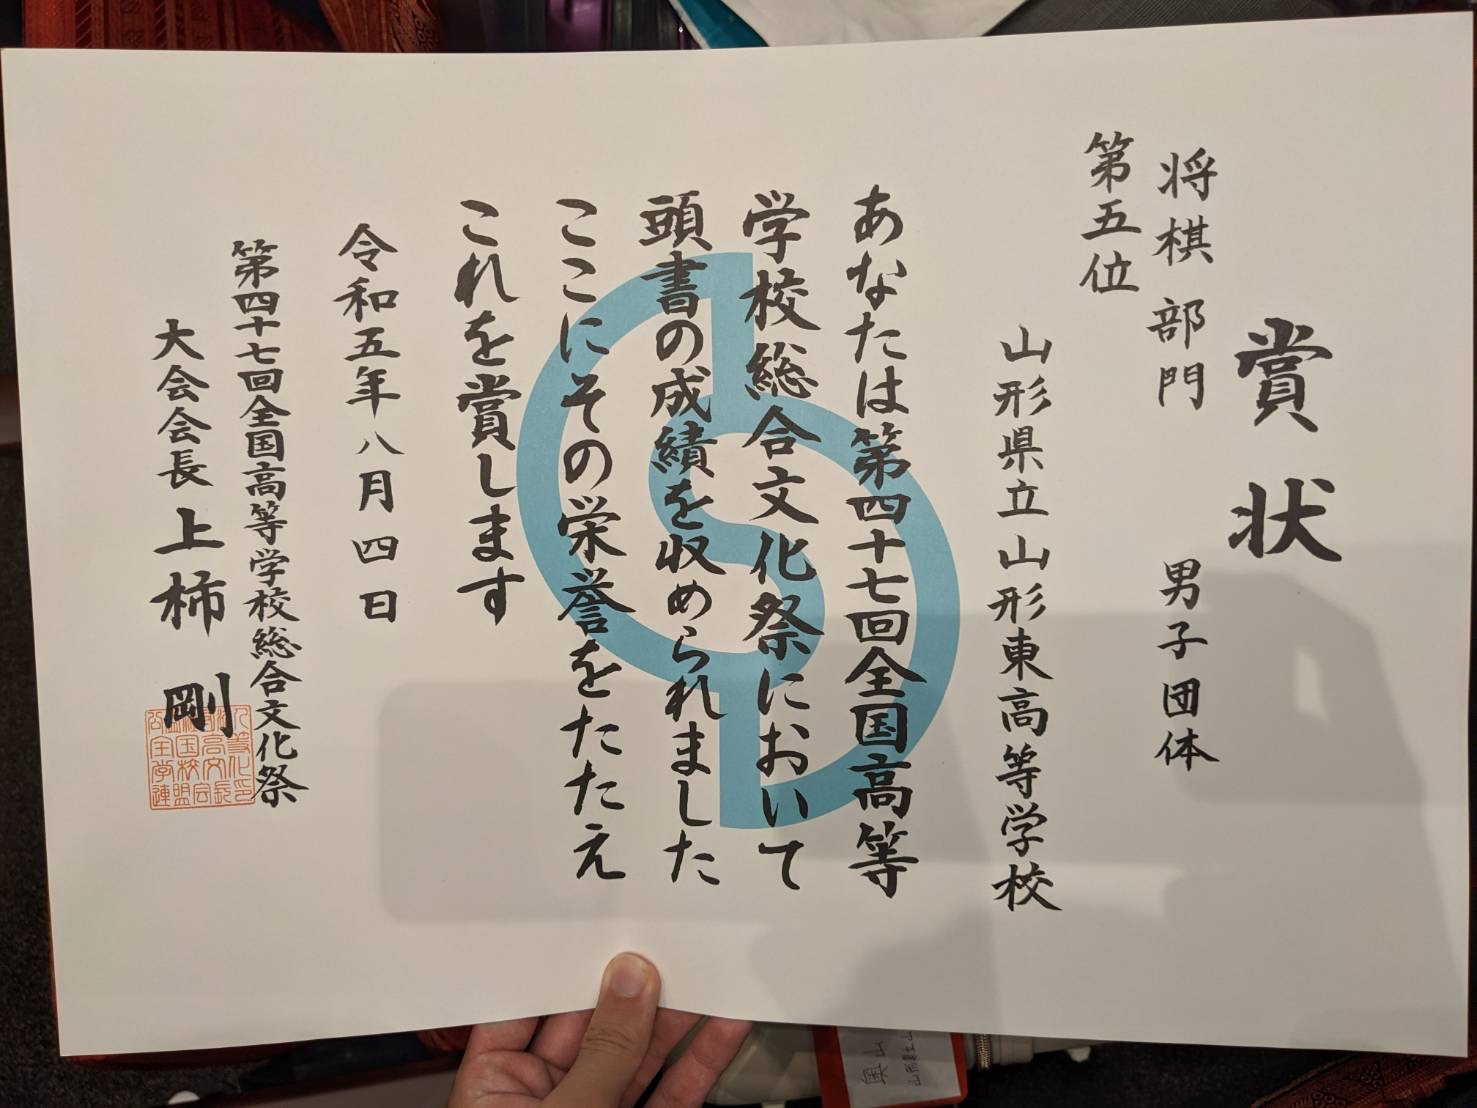 賞状
将棋部門 男子団体
第五位
山形県立山形東高等学校
あなたは第四十七回全国高等
学校総合文化祭において
頭書の成績を収められました
ここにその栄誉をたたえ
これを賞します
令和五年八月四日
第四十七回全国高等学校総合文化祭
大会会長 上柿 剛
奥山
山形県立山